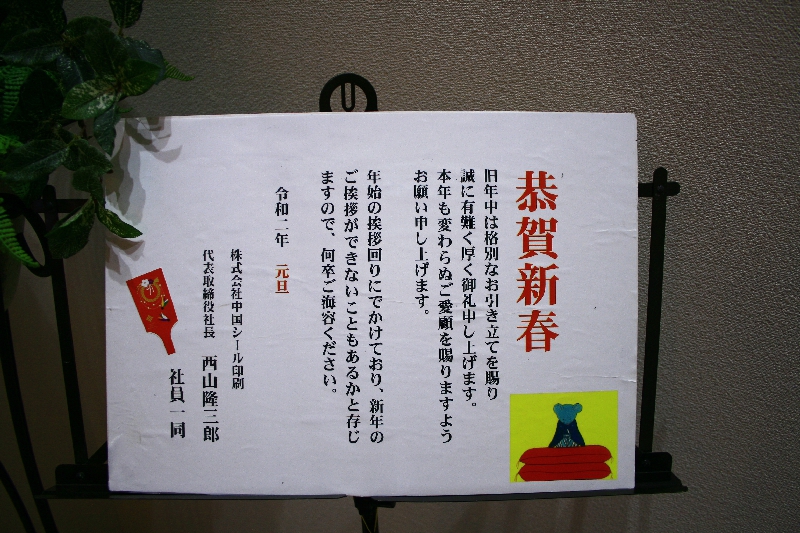 恭賀新春
旧年中は格別なお引き立てを賜り
誠に有難く厚く御礼申し上げます。
本年も変わらぬご愛顧を賜りますよう
お願い申し上げます。
年始の挨拶回りにでかけており、新年の
ご挨拶ができないこともあるかと存じ
ますので、何卒ご海容ください。
令和二年 元旦
株式会社中国シール印刷
代表取締役社長 西山隆三郎
社員一同